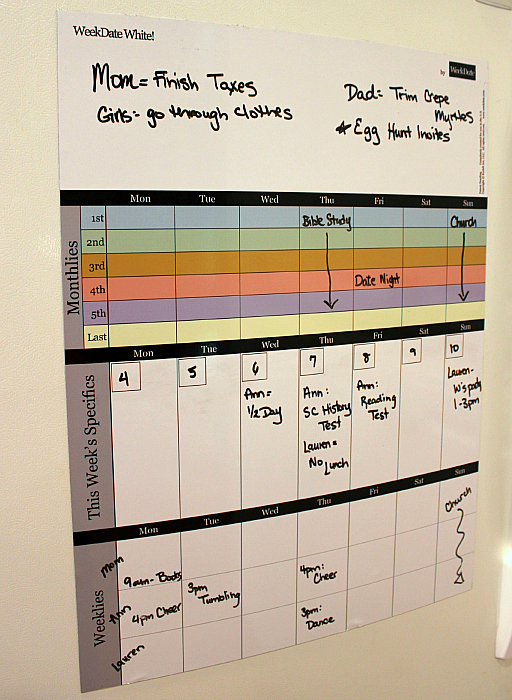 WeekDate White!
by WeekDate
Mom = Finish Taxes
Girls - go through clothes
Dad = Trim Crepe
Myrtles
* Egg Hunt Invites
Mon Tue Wed Thu Fri Sat Sun
Monthlies
1st Bible Study Church
2nd
3rd
4th Date Night
5th
Last
Mon Tue Wed Thu Fri Sat Sun
This Week's Specifics
4 5 6 7 8 9 10
Ann =
1/2 Day
Ann :
SC History
Test
Lauren =
No Lunch
Ann :
Reading
Test
Lauren -
1-3pm
Mon Tue Wed Thu Fri Sat Sun
Weeklies
Mom
9am - Boots
Ann
4pm Cheer
Lauren
3pm
Tumbling
4pm:
Cheer
3pm:
Dance
Church